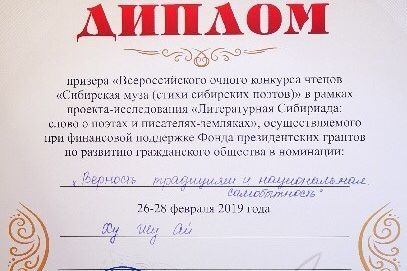 ДИПЛОМ
призера «Всероссийского очного конкурса чтецов
«Сибирская муза (стихи сибирских поэтов)» в рамках
проекта-исследования «Литературная Сибириада:
слово о поэтах и писателях-земляках», осуществляемого
при финансовой поддержке Фонда президентских грантов
по развитию гражданского общества в номинации:
„Верность традициям и национальная
самобытность"
26-28 февраля 2019 года
Ху Шу Ай